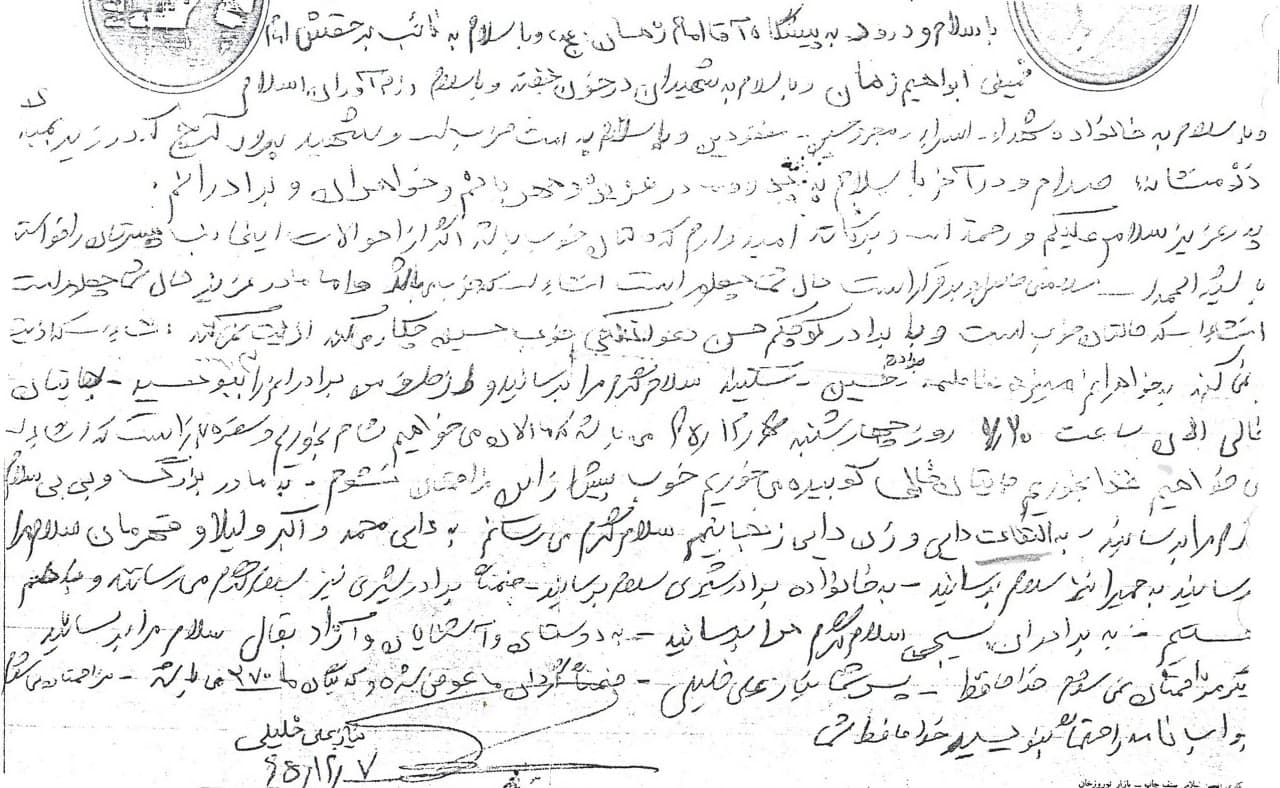 با سلام و درود به پیشگاه آقا امام زمان (عج) و با سلام به نائب بر حقش امام
خمینی ابراهیم زمان و با سلام به شهیدان در خون خفته و با سلام رزم آوران اسلام
و با سلام به خانواده شهداء - اسراء - مجروحین - مفقودین و با سلام به امت حزب الله و شهید پرور کرج که در زیر بمب
صدام و در آخر با سلام به پدر و مادر عزیز و مهربانم و خواهران و برادرانم .
پدر عزیز سلام علیکم و رحمة الله و برکاته امیدوارم که حالتان خوب باشد اگر از احوالات اینجانب پسرتان را خواسته
باشید الحمدلله سلامتی حاصل و برقرار است حال شما چطور است انشاءالله که خوب می باشد و اما مادر عزیز حال شما چطور است
انشاءالله که حالتان خوب است و با برادر کوچکم حسن دعوا نمی کنی خوب حسن چکار می کند اذیت نمی کند انشاءالله که اذیت
نمی کند به خواهرانم منیژه - فاطمه - حسین - سلام گرم مرا برسانید و از طرف من برادرانم را ببوسید - جایتان
خالی الان ساعت ۷/۲۰ روز چهارشنبه می باشد که الان می خواهیم شام بخوریم و سفره باز است که انشاءالله
می خواهیم غذا بخوریم جایتان خالی کوبیده می خوریم خوب بیش از این مزاحمتان نمی شوم - به مادر بزرگ و بی بی سلام
گرم مرا برسانید - به دایی و زن دایی سلام گرم می رسانم به دایی محمد و اکبر و لیلا و قهرمان سلام مرا
برسانید به حمیرا سلام برسانید - به خانواده برادر سلام برسانید - ضمناً برادر نیز سلام گرم می رسانند و با هم
هستیم - به برادران بسیجی سلام گرم مرا برسانید - به دوستان و آشنایان و آزاد بقال سلام مرا برسانید
دیگر مزاحمتان نمی شوم خدا حافظ - پسر شما نیاز علی خلیلی - ضمناً گردان ما عوض شده و گردان ما ۶۷۰ می باشد - مزاحمتان نمی شوم
جواب نامه را حتماً بنویسید خدا حافظ شما
نیاز علی خلیلی
۶۵/۱۲/۷
بازار نوروزخان